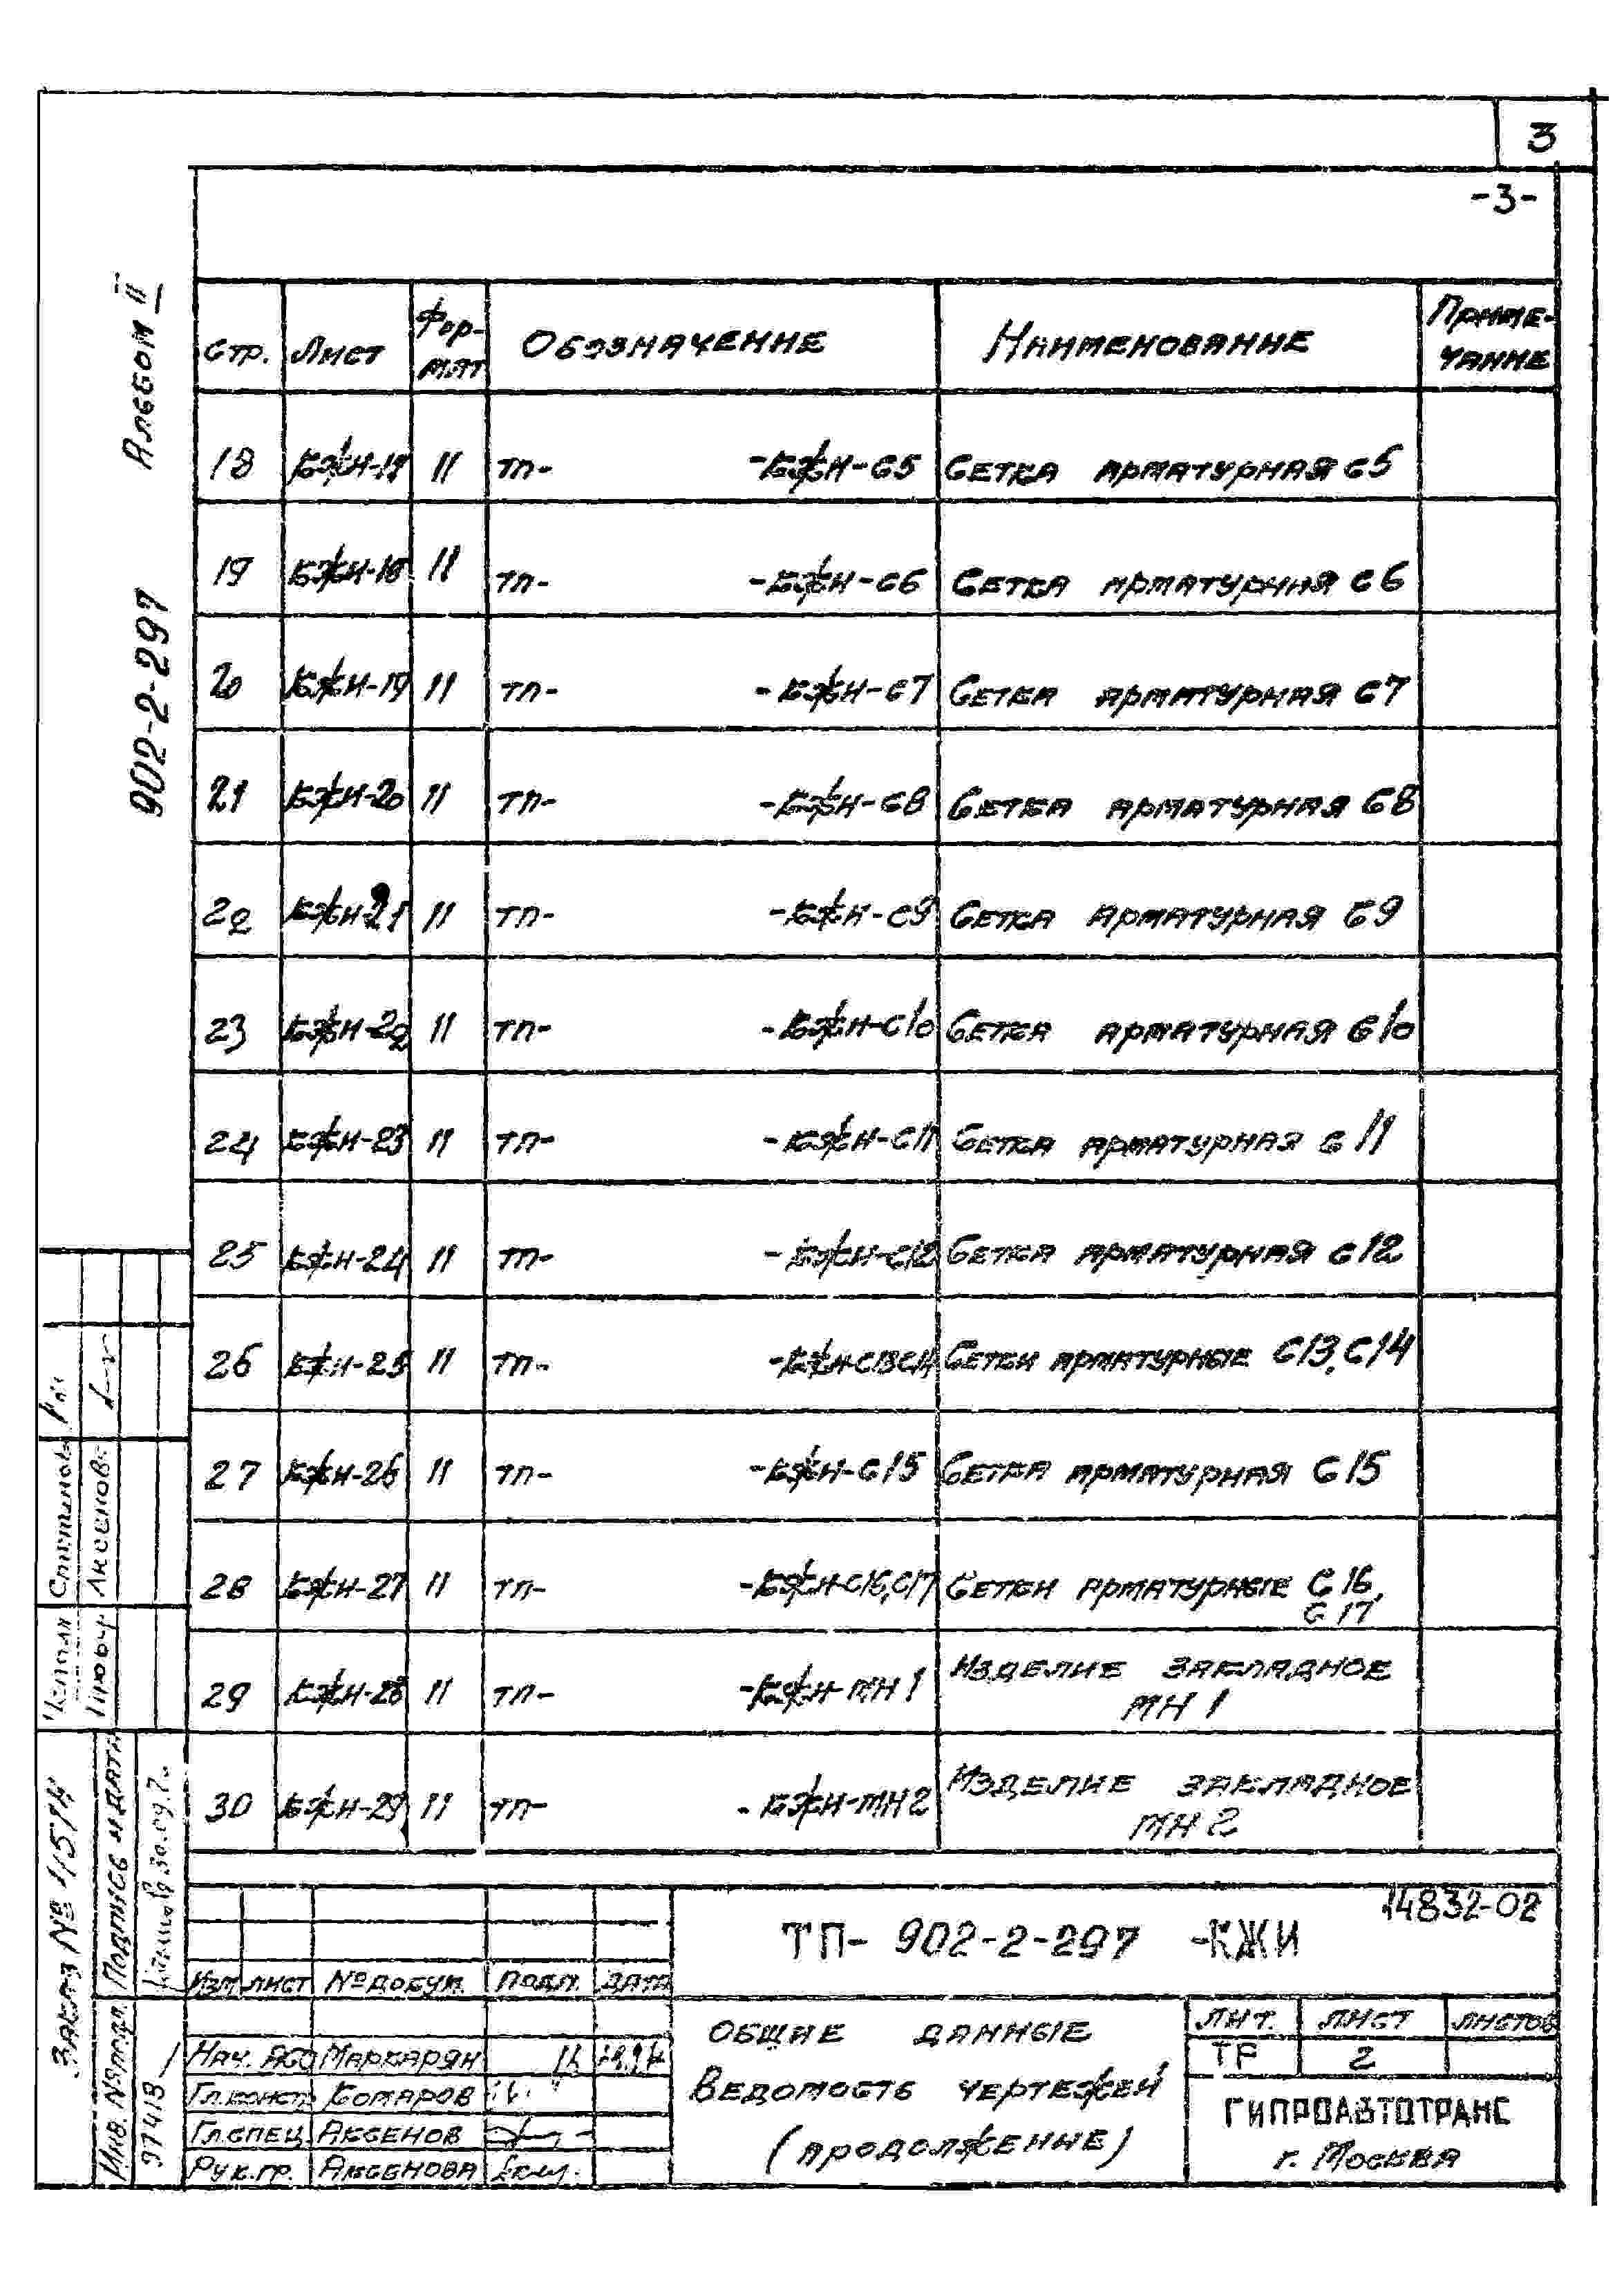 3
-3-
Альбом II
902-2-297
Стр. Лист Фор-мат Обозначение Наименование Приме-чание
18 КЖИ-17 11 ТП- -КЖИ-С5 Сетка арматурная С5
19 КЖИ-18 11 ТП- -КЖИ-С6 Сетка арматурная С6
20 КЖИ-19 11 ТП- -КЖИ-С7 Сетка арматурная С7
21 КЖИ-20 11 ТП- -КЖИ-С8 Сетка арматурная С8
22 КЖИ-21 11 ТП- -КЖИ-С9 Сетка арматурная С9
23 КЖИ-22 11 ТП- -КЖИ-С10 Сетка арматурная С10
24 КЖИ-23 11 ТП- -КЖИ-С11 Сетка арматурная С11
25 КЖИ-24 11 ТП- -КЖИ-С12 Сетка арматурная С12
26 КЖИ-25 11 ТП- -КЖИ-С13,С14 Сетки арматурные С13,С14
27 КЖИ-26 11 ТП- -КЖИ-С15 Сетка арматурная С15
28 КЖИ-27 11 ТП- -КЖИ-С16,С17 Сетки арматурные С16,
С17
29 КЖИ-28 11 ТП- -КЖИ-МН1 Изделие закладное
МН 1
30 КЖИ-29 11 ТП- -КЖИ-МН2 Изделие закладное
МН 2
14832-02
ТП- 902-2-297 -КЖИ
Изм Лист №докум. Подп. Дата
Общие данные
Ведомость чертежей
(продолжение)
Лит. Лист Листов
ТР 2
ГИПРОАВТОТРАНС
г. Москва
Нач. АСО Маркарян
Гл.констр Комаров
Гл.спец. Аксенов
Рук.гр. Аксенова
Аксенова
Заказ №
Подпись и дата
Инв. №подл.
97418